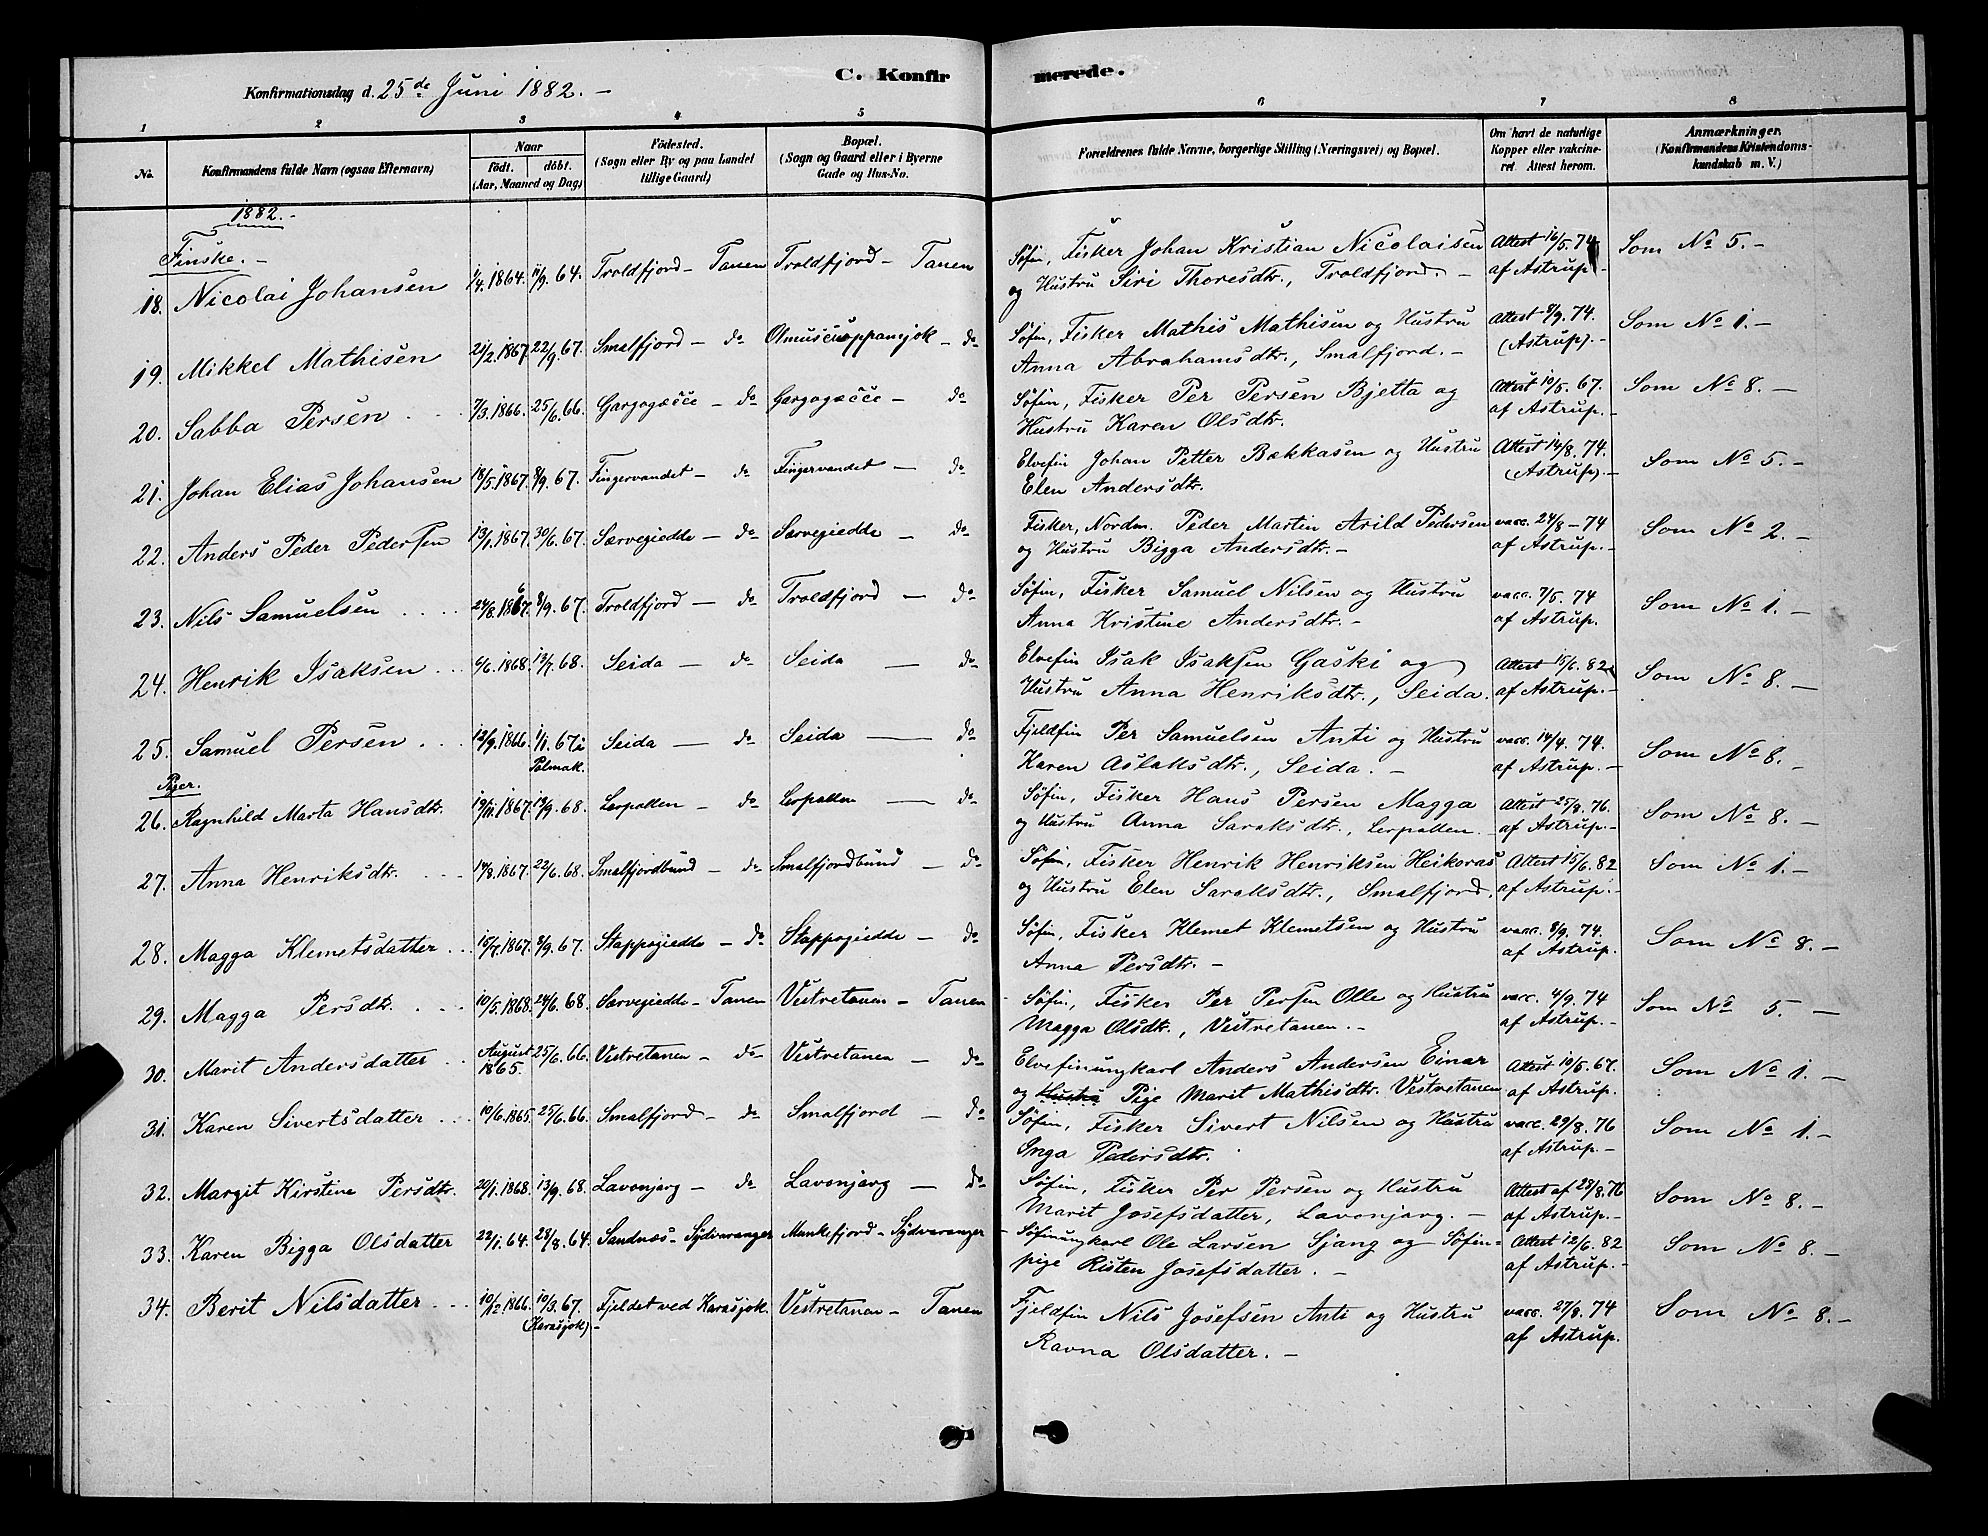 C. Konfirmerede.
Konfirmationsdag d. 25de Juni 1882. -
1 2 3 4 5 6 7 8
No. Konfirmandens fulde Navn (ogsaa Efternavn) Naar født. døbt. (Aar, Maaned og Dag) Fødested. (Sogn eller By og paa Landet tillige Gaard) Bopæl. (Sogn og Gaard eller i Byerne Gade og Hus-No. Forældrenes fulde Navne, borgerlige Stilling (Næringsvei) og Bopæl. Om havt de naturlige Kopper eller vakcineret. Attest herom. Anmærkninger. (Konfirmandens Kristendomskundskab m. V.)
1882. -
Finske. -
18. Nicolai Johansen 1/4. 1864. 11/9. 64. Troldfjord - Tanen Troldfjord - Tanen Søfin, Fisker Johan Kristian Nicolaisen Attest 16/5. 74 Som No 5. -
og Hustru Siri Thoresdtr., Troldfjord. - af Astrup -
19. Mikkel Mathisen 21/2. 1867. 22/9. 67. Smalfjord - do Olmuscuoppamjok - do Søfin, Fisker Mathis Mathisen og Hustru Attest 8/9. 74. Som No 1. -
Anna Abrahamsdtr., Smalfjord. - (Astrup). -
20. Sabba Persen 7/3. 1866. 25/6. 66. Gargogæčče - do Gargogæčče - do Søfin, Fisker Per Persen Bjetta og Attest 10/5. 67. Som No 8. -
Hustru Karen Olsdtr. af Astrup. -
21. Johan Elias Johansen 18/5. 1867. 8/9. 67. Fingervandet - do Fingervandet - do Elvefin Johan Petter Bækkasen og Hustru Attest 14/8. 74. Som No 5. -
Elen Andersdtr. (Astrup). -
22. Anders Peder Pedersen 13/1. 1867. 30/6. 67. Sarvegiedde - do Sarvegiedde - do Fisker, Nordm. Peder Martin Arild Pedersen vacc. 24/8 - 74 Som No 2. -
og Hustru Bigga Andersdtr. - af Astrup. -
23. Nils Samuelsen 24/8. 1866. 8/9. 67. Troldfjord - do Troldfjord - do Søfin, Fisker Samuel Nilsen og Hustru vacc. 7/5. 74 Som No 1. -
Anna Kristine Andersdtr. - af Astrup.
24. Henrik Isaksen 6/6. 1868. 13/7. 68. Seida - do Seida - do Elvefin Isak Isaksen Gaski og Attest 15/6. 82 Som No 8. -
Hustru Anna Henriksdtr., Seida. af Astrup. -
25. Samuel Persen 12/9. 1866. 1/1. 67 i Seida - do Seida - do Fjeldfin Per Samuelsen Anti og Hustru vacc. 14/4. 74. Som No 8. -
Polmak. Karen Aslaksdtr., Seida. - af Astrup. -
Piger.
26. Ragnhild Marta Hansdtr. 19/11. 1867. 13/9. 68. Lerpollen - do Lerpollen - do Søfin, Fisker Hans Persen Magga Attest 25/8. 76 Som No 8. -
og Hustru Anna Saraksdtr., Lerpollen. af Astrup. -
27. Anna Henriksdtr. 14/8. 1867. 22/6. 68. Smalfjordbund - do Smalfjordbund - do Søfin, Fisker Henrik Henriksen Heikoras Attest 15/6. 82 Som No 1. -
og Hustru Elen Saraksdtr., Smalfjord. af Astrup. -
28. Magga Klemetsdatter 15/7. 1867. 8/9. 67. Stappogiedde - do Stappogiedde - do Søfin, Fisker Klemet Klemetsen og Hustru vacc. 8/9. 74. Som No 8. -
Anna Persdtr. - af Astrup.
29. Magga Persdtr. 10/5. 1868. 24/6. 68. Sarvegiedde - Tanen Vestretanen - Tanen Søfin, Fisker Per Persen Olle og Hustru vacc. 4/9. 74 Som No 5. -
Magga Olsdtr., Vestretanen. - af Astrup. -
30. Marit Andersdatter August 1865. 25/6. 66. Vestretanen - do Vestretanen - do Elvefinungkarl Anders Andersen Einar Attest 10/5. 67. Som No 1. -
og Hustru Pige Marit Mathisdtr. Vestretanen af Astrup.
31. Karen Sivertsdatter 10/6. 1865. 25/6. 66. Smalfjord - do Smalfjord - do Søfin, Fisker Sivert Nilsen og Hustru vacc. 29/8. 76 Som No 1. -
Inga Pedersdtr. af Astrup. -
32. Margit Kirstine Persdtr. 20/1. 1868. 13/9. 68. Lavonjarg - do Lavonjarg - do Søfin, Fisker Per Persen og Hustru Attest af 28/8. 76 Som No 8. -
Marit Josefsdatter, Lavonjarg. - af Astrup. -
33. Karen Bigga Olsdatter 22/1. 64. 28/8. 64. Sandnæs - Sydvaranger Munkefjord - Sydvaranger Søfinungkarl Ole Larsen Sjang og Søfin- Attest 12/6. 82 Som No 8. -
pige Risten Josefsdatter. - af Astrup. -
34. Berit Nilsdatter 10/12. 1866. 10/3. 67. Fjeldet ved Karasjok. Vestretanen - Tanen Fjeldfin Nils Josefsen Anti og Hustru vacc. 27/8. 74 Som No 8. -
(Karasjok) - Ravna Olsdatter. - af Astrup.